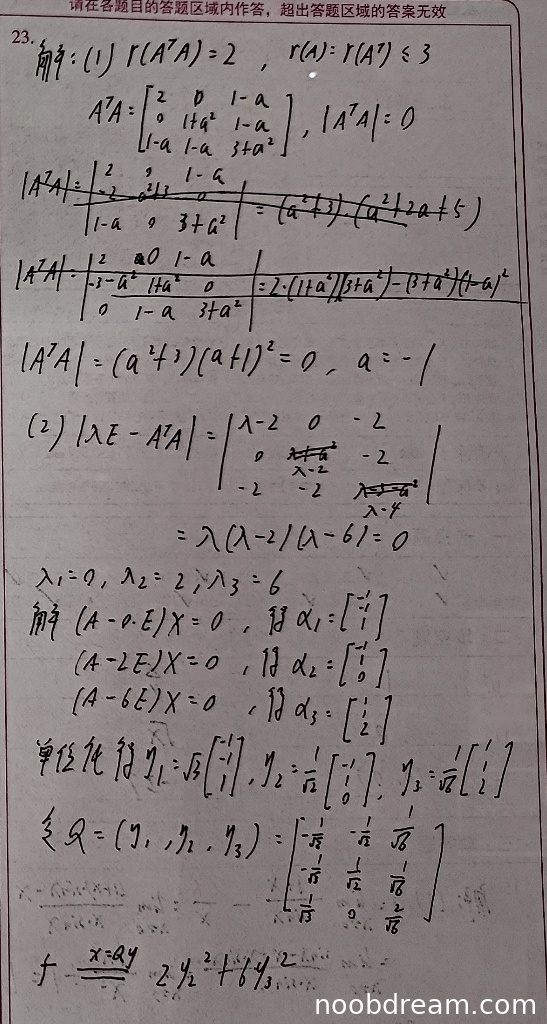 请在各题目的答题区域内作答，超出答题区域的答案无效
23.
解:(1) r(AᵀA)=2 , r(A)=r(Aᵀ)≤3
AᵀA=[2 0 1-a; 0 1+a² 1-a; 1-a 1-a 3+a²] , |AᵀA|=0
|AᵀA|=|2 0 1-a; -2 a²+3 0; 1-a 0 3+a²|=(a²+3)·(a²+2a+5)
|AᵀA|=|2 0 1-a; -3-a² 1+a² 0; 0 1-a 3+a²|=2·(1+a²)(3+a²)-(3+a²)(1-a)²
|AᵀA|=(a²+3)(a+1)²=0, a=-1
(2) |λE-AᵀA|=|λ-2 0 -2; 0 λ-2 -2; -2 -2 λ-4|
=λ(λ-2)(λ-6)=0
λ₁=0, λ₂=2, λ₃=6
解 (A-0·E)X=0 , 得 α₁=[-1 -1 1]
(A-2E)X=0 , 得 α₂=[-1 1 0]
(A-6E)X=0 , 得 α₃=[1 1 2]
单位化得 η₁=√3[-1 -1 1], η₂=1/√2[-1 1 0], η₃=1/√6[1 1 2]
令 Q=(η₁, η₂, η₃)=[-1/√3 -1/√2 1/√6; -1/√3 1/√2 1/√6; 1/√3 0 2/√6]
f x=Qy 2y₂²+6y₃²
noobdream.com